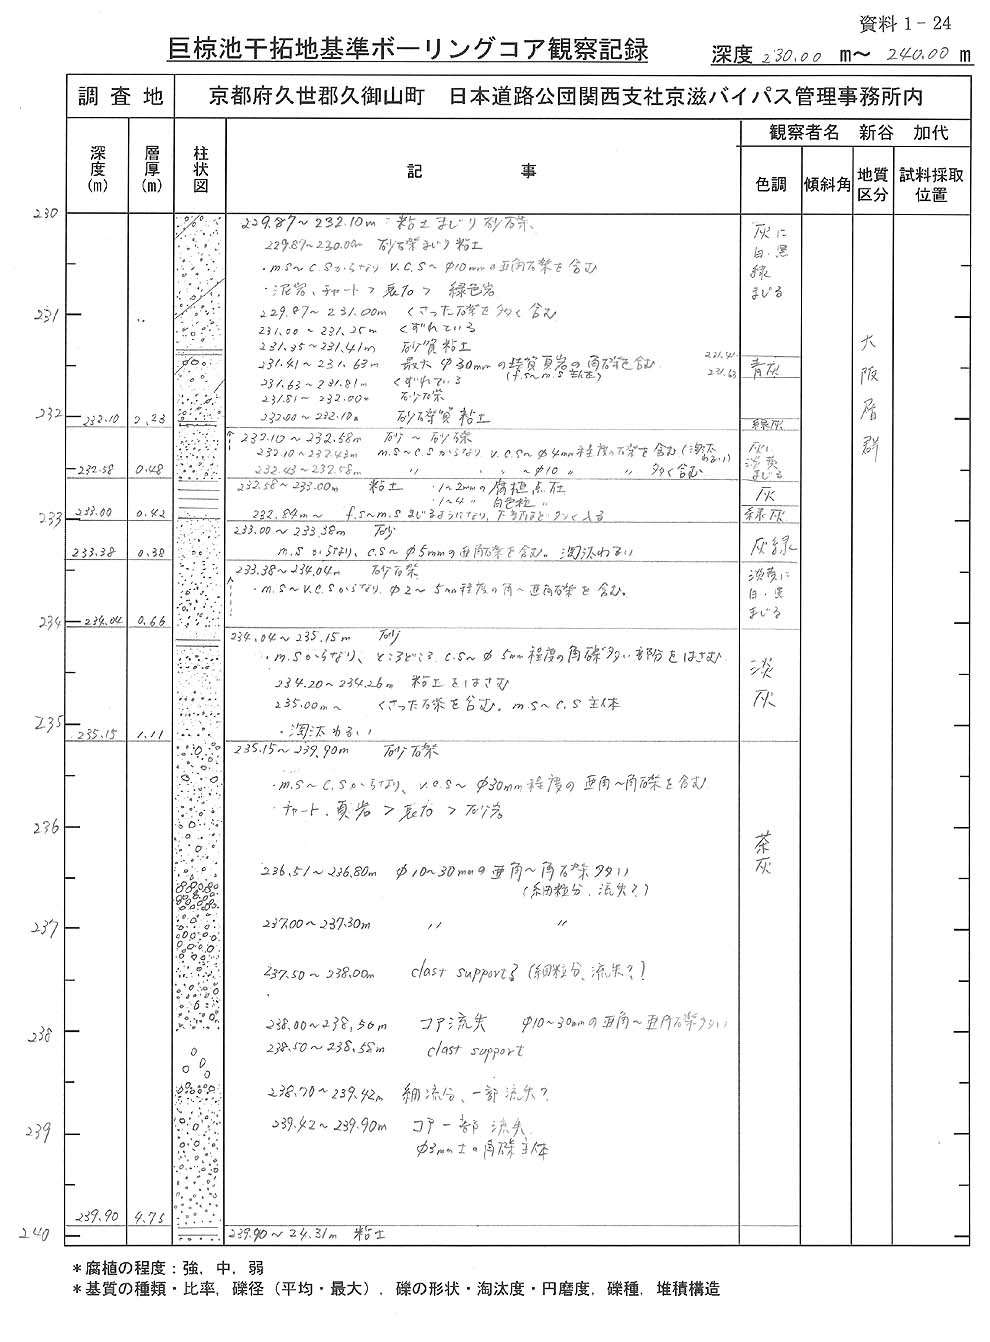 資料1-24
巨椋池干拓地基準ボーリングコア観察記録
深度 230.00 m～ 240.00 m
調査地 京都府久世郡久御山町 日本道路公団関西支社京滋バイパス管理事務所内
観察者名 新谷 加代
深度(m) 層厚(m) 柱状図 記事 色調 傾斜角 地質区分 試料採取位置
230
229.87～232.10m 粘土まじり砂礫
229.87～230.00m 砂礫まじり粘土
・m.s～c.sからなり v.c.s～φ10mmの亜角礫を含む
・泥岩、チャート > 長石 > 緑色岩
灰に白・黒緑まじる
231
229.87～231.00m くさった礫を多く含む
231.00～231.25m くずれている
231.35～231.41m 砂質粘土
231.41～231.63m 最大φ30mmの 頁岩の角礫を含む
(f.s～m.s主体)
231.41
231.63
青灰
231.63～231.81m くずれている
231.81～232.00m 砂礫
232
232.00～232.10m 砂礫質粘土
232.10 2.23
緑灰
大阪層群
232.10～232.58m 砂～砂礫
232.10～232.43m m.s～c.sからなり v.c.s～φ4mm程度の礫を含む (淘汰わるい)
232.43～232.58m 〃 〃 〃 φ10〃 〃 多く含む
灰に淡黄まじる
232.58 0.48
232.58～233.00m 粘土 ・1～2mmの腐植点在
・1～4〃 白色粒 〃
灰
232.84m～ f.s～m.sまじるようになり、下方ほど多く入る
緑灰
233
233.00 0.42
233.00～233.38m 砂
m.sからなり、c.s～φ5mmの亜角礫を含む。淘汰わるい
灰緑
233.38 0.38
233.38～234.04m 砂礫
・m.s～v.c.sからなり φ2～5mm程度の角～亜角礫を含む。
淡黄に白・黒まじる
234
234.04 0.66
234.04～235.15m 砂
・m.sからなり、ところどころ c.s～φ5mm程度の角礫多い部分をはさむ
234.20～234.26m 粘土をはさむ
235.00m～ くさった礫を含む。m.s～c.s主体
・淘汰わるい
淡灰
235
235.15 1.11
235.15～239.90m 砂礫
・m.s～c.sからなり、v.c.s～φ30mm程度の亜角～角礫を含む
・チャート、頁岩 > 長石 > 砂岩
茶灰
236
236.51～236.80m φ10～30mmの亜角～角礫多い
(細粒分、流失？)
237
237.00～237.30m 〃 〃
237.50～238.00m clast support? (細粒分、流失？)
238
238.00～238.56m コア流失 φ10～30mmの亜角～亜角礫多い
238.50～238.58m clast support
238.70～239.42m 細流分、一部流失？
239
239.42～239.90m コア一部流失
φ3mm±の角礫主体
239.90 4.75
239.90～24.31m 粘土
240
*腐植の程度：強，中，弱
*基質の種類・比率，礫径（平均・最大），礫の形状・淘汰度・円磨度，礫種，堆積構造